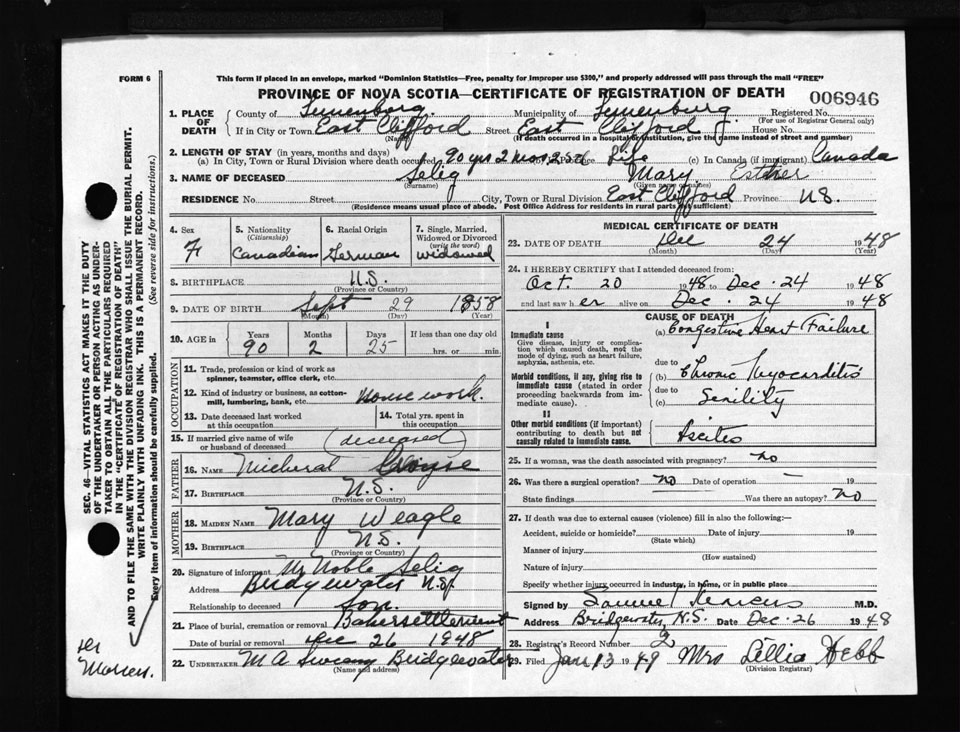 FORM 6
This form if placed in an envelope, marked "Dominion Statistics—Free, penalty for improper use $300," and properly addressed will pass through the mail "FREE"
PROVINCE OF NOVA SCOTIA—CERTIFICATE OF REGISTRATION OF DEATH
006946
1. PLACE OF DEATH
County of Lunenburg. Municipality of Lunenburg. Registered No.
(For use of Registrar General only)
If in City or Town East Clifford Street East Clifford House No.
(If death occurred in a hospital or institution, give the name instead of street and number)
2. LENGTH OF STAY (in years, months and days)
(a) In City, Town or Rural Division where death occurred 90 yrs 2 mos 25 d Life (c) In Canada (if immigrant) Canada
3. NAME OF DECEASED Selig Mary Esther
(Surname) (Given name or names)
RESIDENCE No. Street City, Town or Rural Division East Clifford Province N.S.
(Residence means usual place of abode. Post Office Address for residents in rural parts not sufficient)
4. Sex F
5. Nationality (Citizenship) Canadian
6. Racial Origin German
7. Single, Married, Widowed or Divorced (write the word) Widowed
8. BIRTHPLACE N.S.
(Province or Country)
9. DATE OF BIRTH Sept 29 1858
(Month) (Day) (Year)
10. AGE in Years 90 Months 2 Days 25 If less than one day old hrs. or min.
OCCUPATION
11. Trade, profession or kind of work as spinner, teamster, office clerk, etc.
12. Kind of industry or business, as cotton-mill, lumbering, bank, etc. House work.
13. Date deceased last worked at this occupation
14. Total yrs. spent in this occupation
15. If married give name of wife or husband of deceased (deceased)
FATHER
16. NAME
17. BIRTHPLACE N.S.
(Province or Country)
MOTHER
18. MAIDEN NAME Mary Weagle
19. BIRTHPLACE N.S.
(Province or Country)
20. Signature of informant Mr Noble Selig
Address Bridgewater N.S.
Relationship to deceased Son.
21. Place of burial, cremation or removal Bakersettlement
Date of burial or removal Dec 26 1948
22. UNDERTAKER M A Bridgewater
(Name and address)
MEDICAL CERTIFICATE OF DEATH
23. DATE OF DEATH Dec 24 1948
(Month) (Day) (Year)
24. I HEREBY CERTIFY that I attended deceased from:
Oct. 20 1948 to Dec. 24 1948
and last saw her alive on Dec. 24 1948
CAUSE OF DEATH
I
Immediate cause (a) Congestive Heart Failure
Give disease, injury or complication which caused death, not the mode of dying, such as heart failure, asphyxia, asthenia, etc.
due to
Morbid conditions, if any, giving rise to immediate cause (stated in order proceeding backwards from immediate cause).
(b) Chronic Myocarditis
due to
(c) Senility
II
Other morbid conditions (if important) contributing to death but not causally related to immediate cause.
Ascites
25. If a woman, was the death associated with pregnancy? No
26. Was there a surgical operation? No Date of operation 19
State findings Was there an autopsy? No
27. If death was due to external causes (violence) fill in also the following:—
Accident, suicide or homicide? Date of injury 19
(State which)
Manner of injury
(How sustained)
Nature of injury
Specify whether injury occurred in industry, in home, or in public place
Signed by Samuel Marcus M.D.
Address Bridgewater, N.S. Date Dec. 26 1948
28. Registrar's Record Number 2
29. Filed Jan. 13 1949 Mrs Lillia Hebb
(Division Registrar)
SEC. 46—VITAL STATISTICS ACT MAKES IT THE DUTY
OF THE UNDERTAKER OR PERSON ACTING AS UNDER-
TAKER TO OBTAIN ALL THE PARTICULARS REQUIRED
IN THE "CERTIFICATE OF REGISTRATION OF DEATH"
AND TO FILE THE SAME WITH THE DIVISION REGISTRAR WHO SHALL ISSUE THE BURIAL PERMIT.
WRITE PLAINLY WITH UNFADING INK. THIS IS A PERMANENT RECORD.
Every item of information should be carefully supplied. (See reverse side for instructions.)